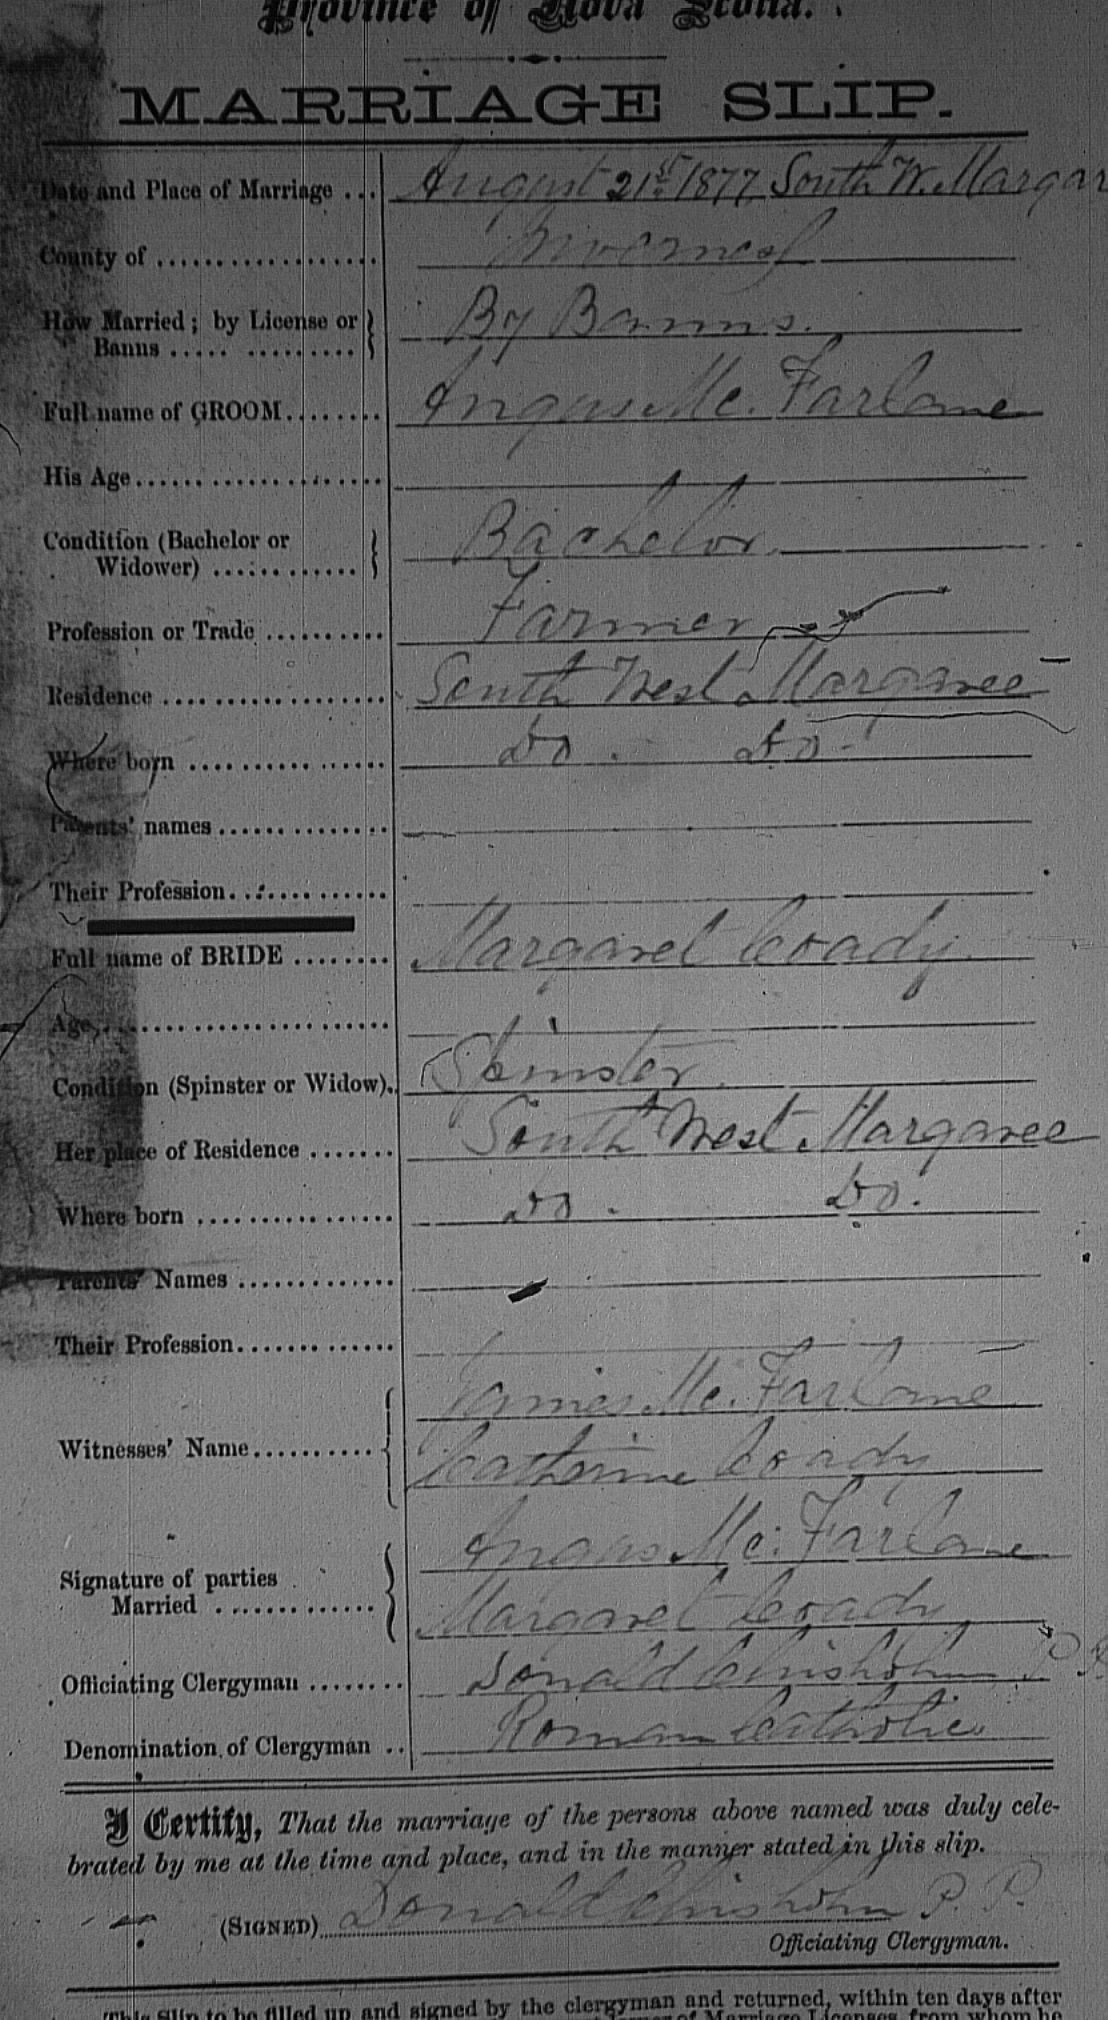 Province of Nova Scotia.
MARRIAGE SLIP.
Date and Place of Marriage ... August 21st 1877 South W. Margar
County of .................. Inverness
How Married; by License or
Banns ..... ......... By Banns.
Full name of GROOM........ Angus Mc. Farlane
His Age....................
Condition (Bachelor or
Widower) ............ Bachelor
Profession or Trade .......... Farmer
Residence .................. South West Margaree
Where born ............... Do. Do.
Parents' names..............
Their Profession.............
Full name of BRIDE ........ Margaret Coady
Age......................
Condition (Spinster or Widow).. Spinster
Her place of Residence ....... South West Margaree
Where born ................ Do. Do.
Parents' Names .............
Their Profession.............
James Mc. Farlane
Witnesses' Name.......... Catherine Coady
Angus Mc. Farlane
Signature of parties
Married ............. Margaret Coady
Officiating Clergyman ........ Donald Chisholm P. P.
Denomination of Clergyman .. Roman Catholic
I Certify, That the marriage of the persons above named was duly cele-
brated by me at the time and place, and in the manner stated in this slip.
(SIGNED) Donald Chisholm P. P.
Officiating Clergyman.
This Slip to be filled up and signed by the clergyman and returned, within ten days after
of Marriage Licenses, from whom he